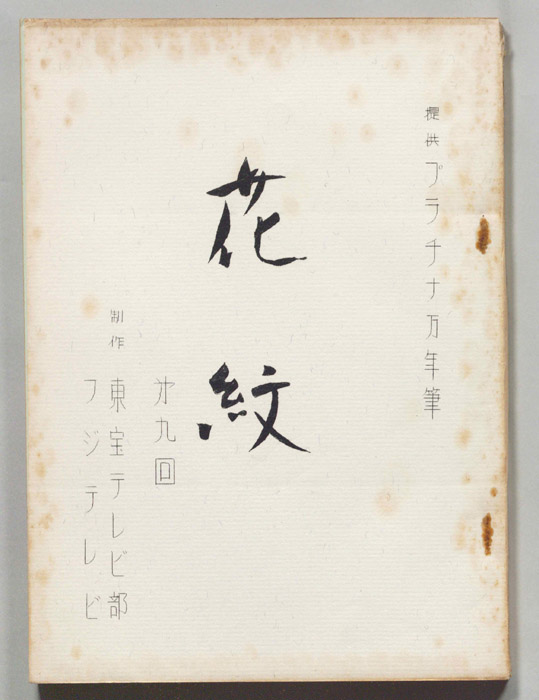 提供 プラチナ万年筆
花紋
才九回
制作 東宝テレビ部
フジテレビ